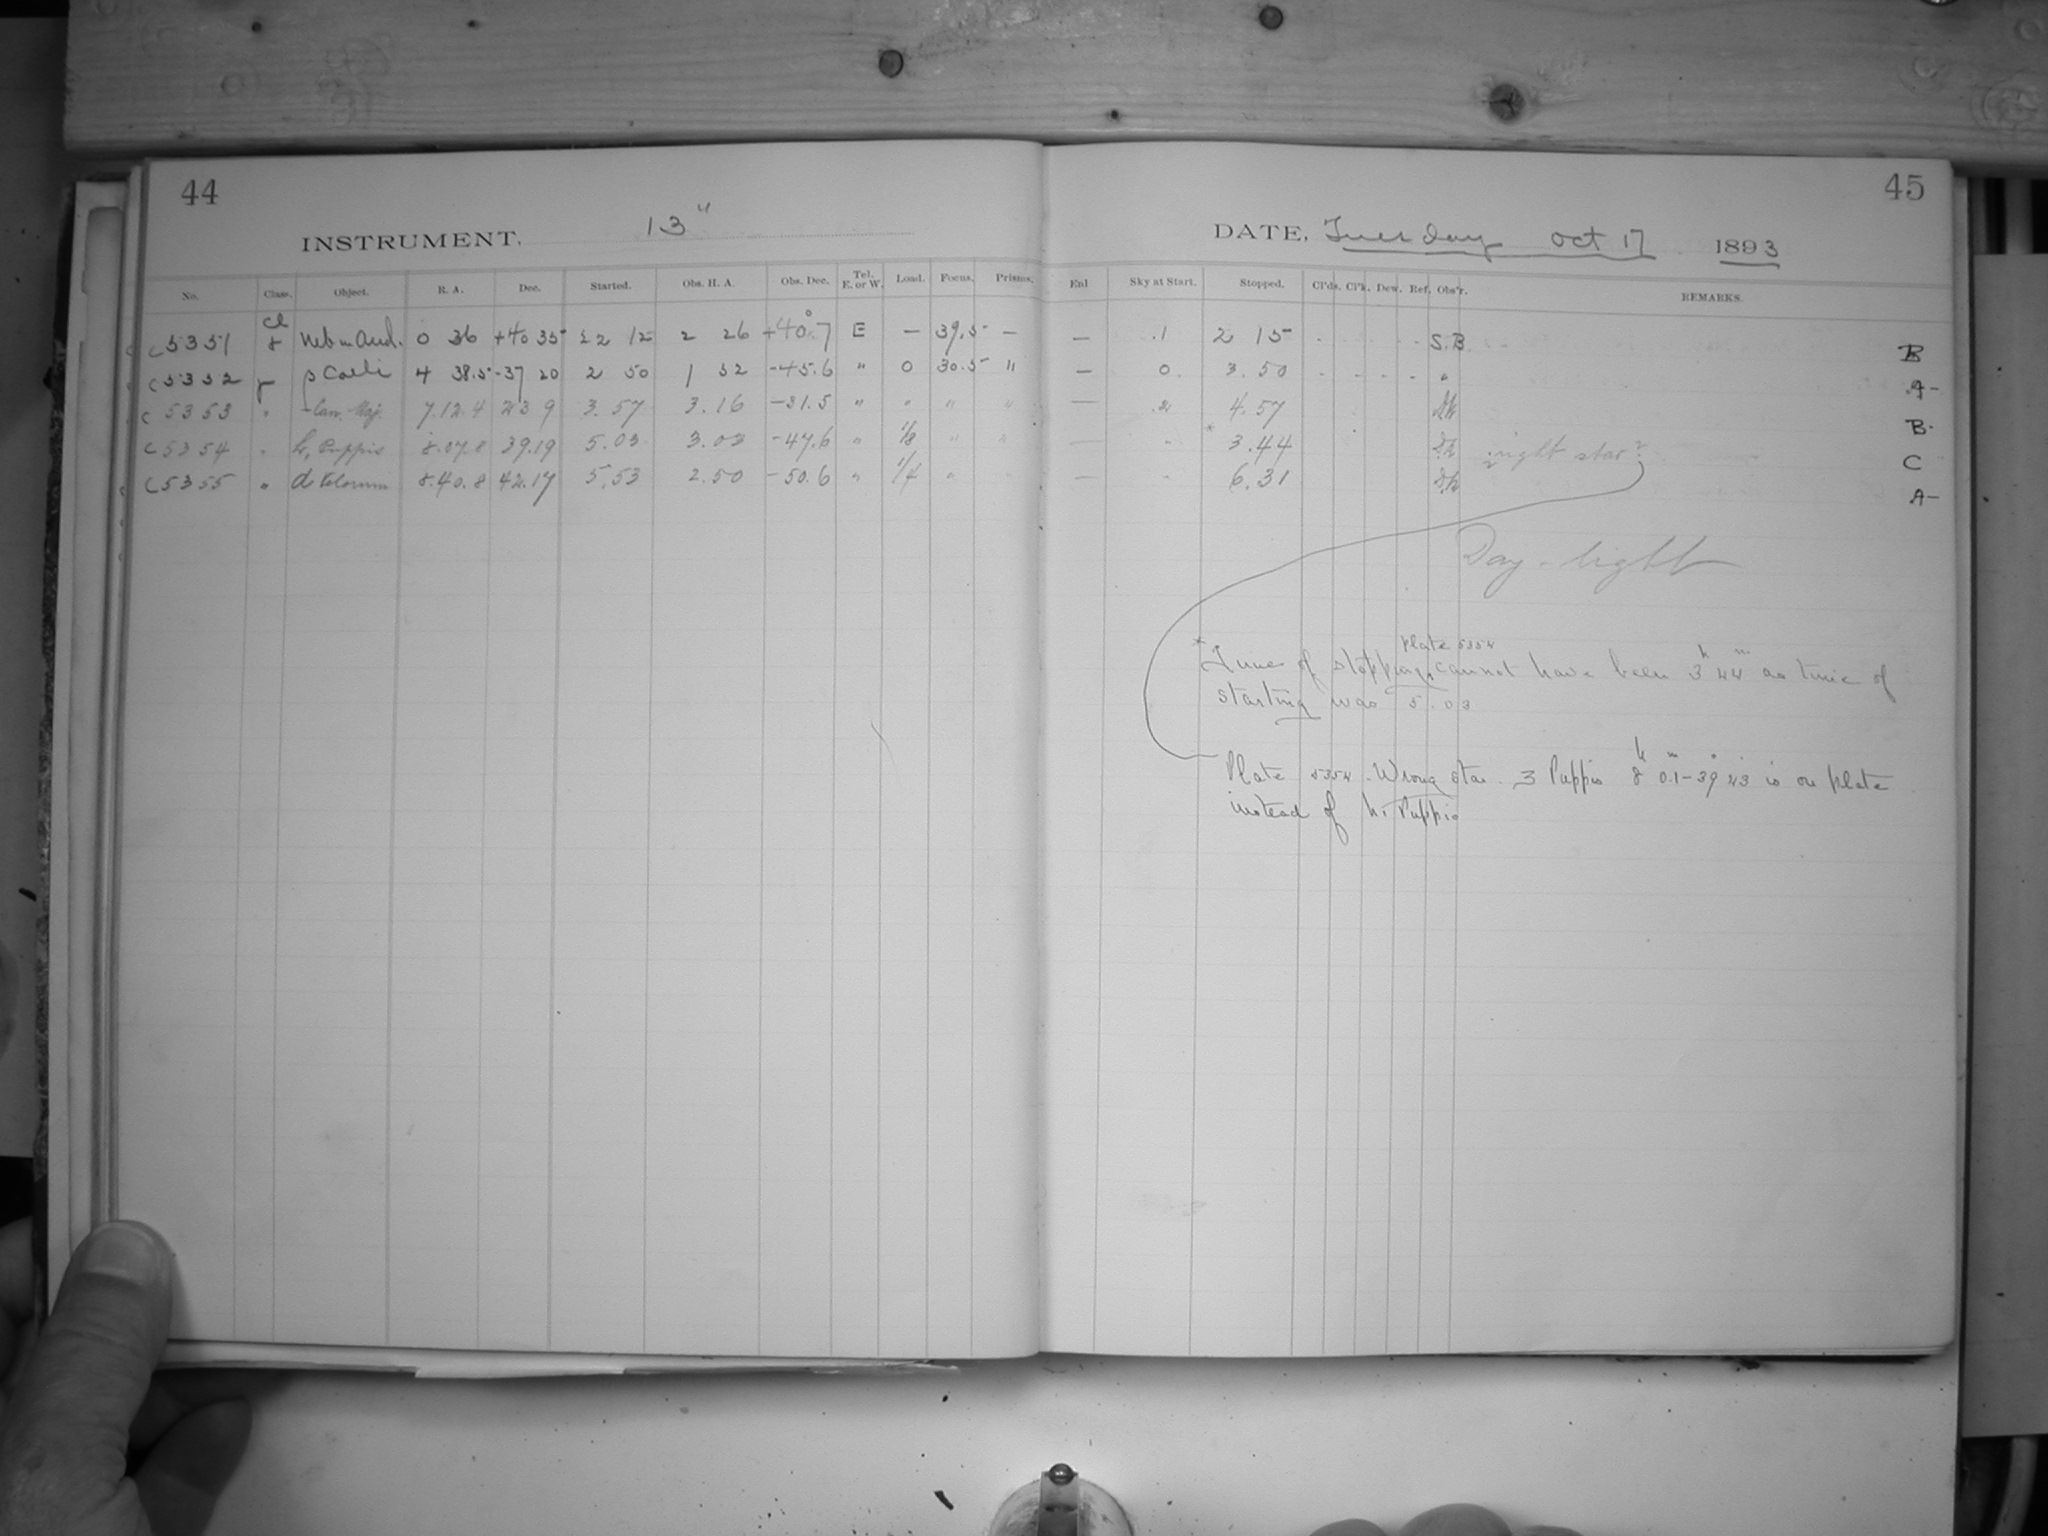 44
45
INSTRUMENT, 13"
DATE, Tuesday Oct 17 1893
No. Class. Object. R. A. Dec. Started. Obs. H. A. Obs. Dec. Tel. E. or W. Load. Focus. Prisms. Enl Sky at Start. Stopped. Cl'ds. Cl'k. Dew. Ref. Obs'r. REMARKS.
C 5351 Cl 8 Neb in And. 0 36 +40 35 22 12 2 26 +40°.7 E — 39.5 — — .1 2 15 S.B. B
C 5352 4 38.5 -37 20 2 50 1 52 -45.6 " 0 30.5 " — 0. 3.50 " A-
C 5353 " Can. Maj. 7.12.4 23 9 3.57 3.16 -31.5 " " " " — 4.57 B-
C 5354 " Puppis 8.07.8 39.19 5.03 3.03 -47.6 " 1/8 " " — " * 3.44 right star? C
C 5355 " d Velorum 8.40.8 42.17 5.53 2.50 -50.6 " 1/4 " — " 6.31 A-
Day-light
plate 5354
* Time of stopping cannot have been 3h 44m as time of
starting was 5.03
Plate 5354. Wrong star. 3 Puppis 8h 0.1m -39° 43 is on plate
instead of h, Puppis